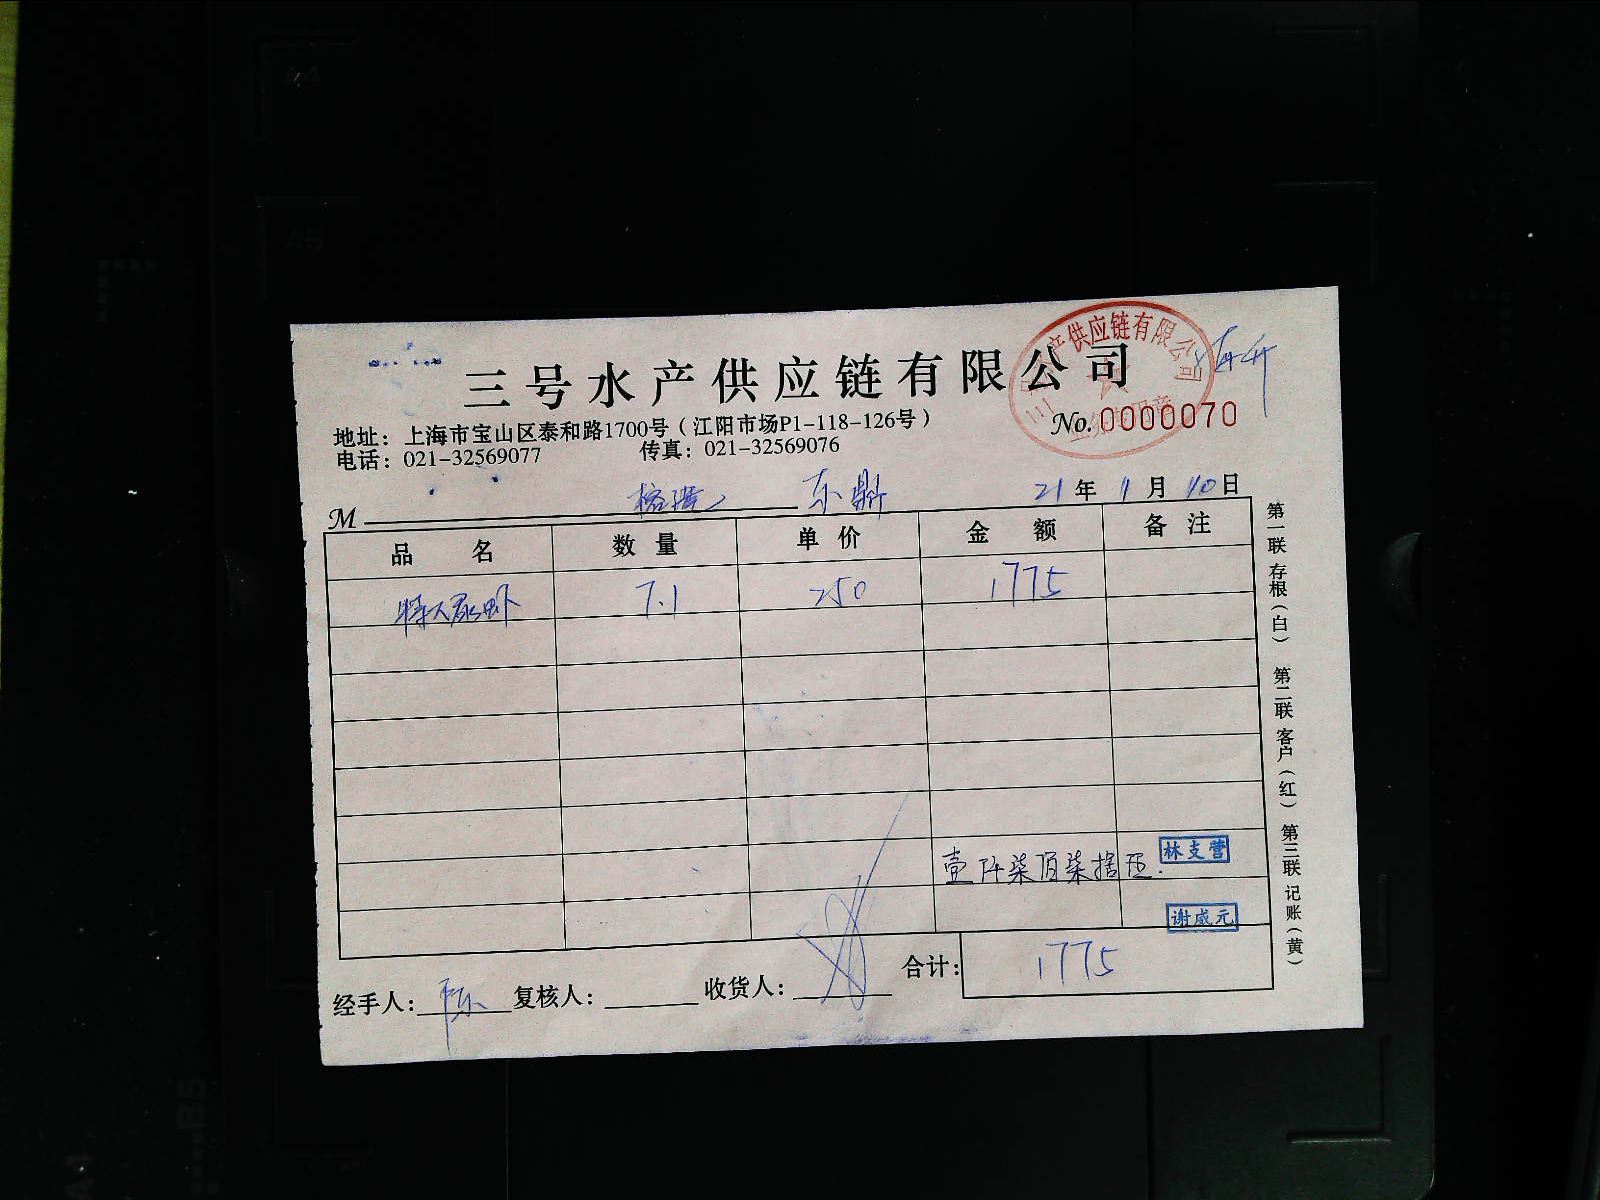 三号水产供应链有限公司
地址：上海市宝山区泰和路1700号（江阳市场P1-118-126号）
No.0000070
电话：021-32569077 传真：021-32569076
M 榕港 东鼎 21年 11月 10日
品名 数量 单价 金额 备注
特大 7.1 250 1775
壹仟柒佰柒拾伍
林支营
谢咸元
经手人：陈 复核人： 收货人： 合计：1775
第一联 存根（白） 第二联 客户（红） 第三联 记账（黄）
产供应链有限公司